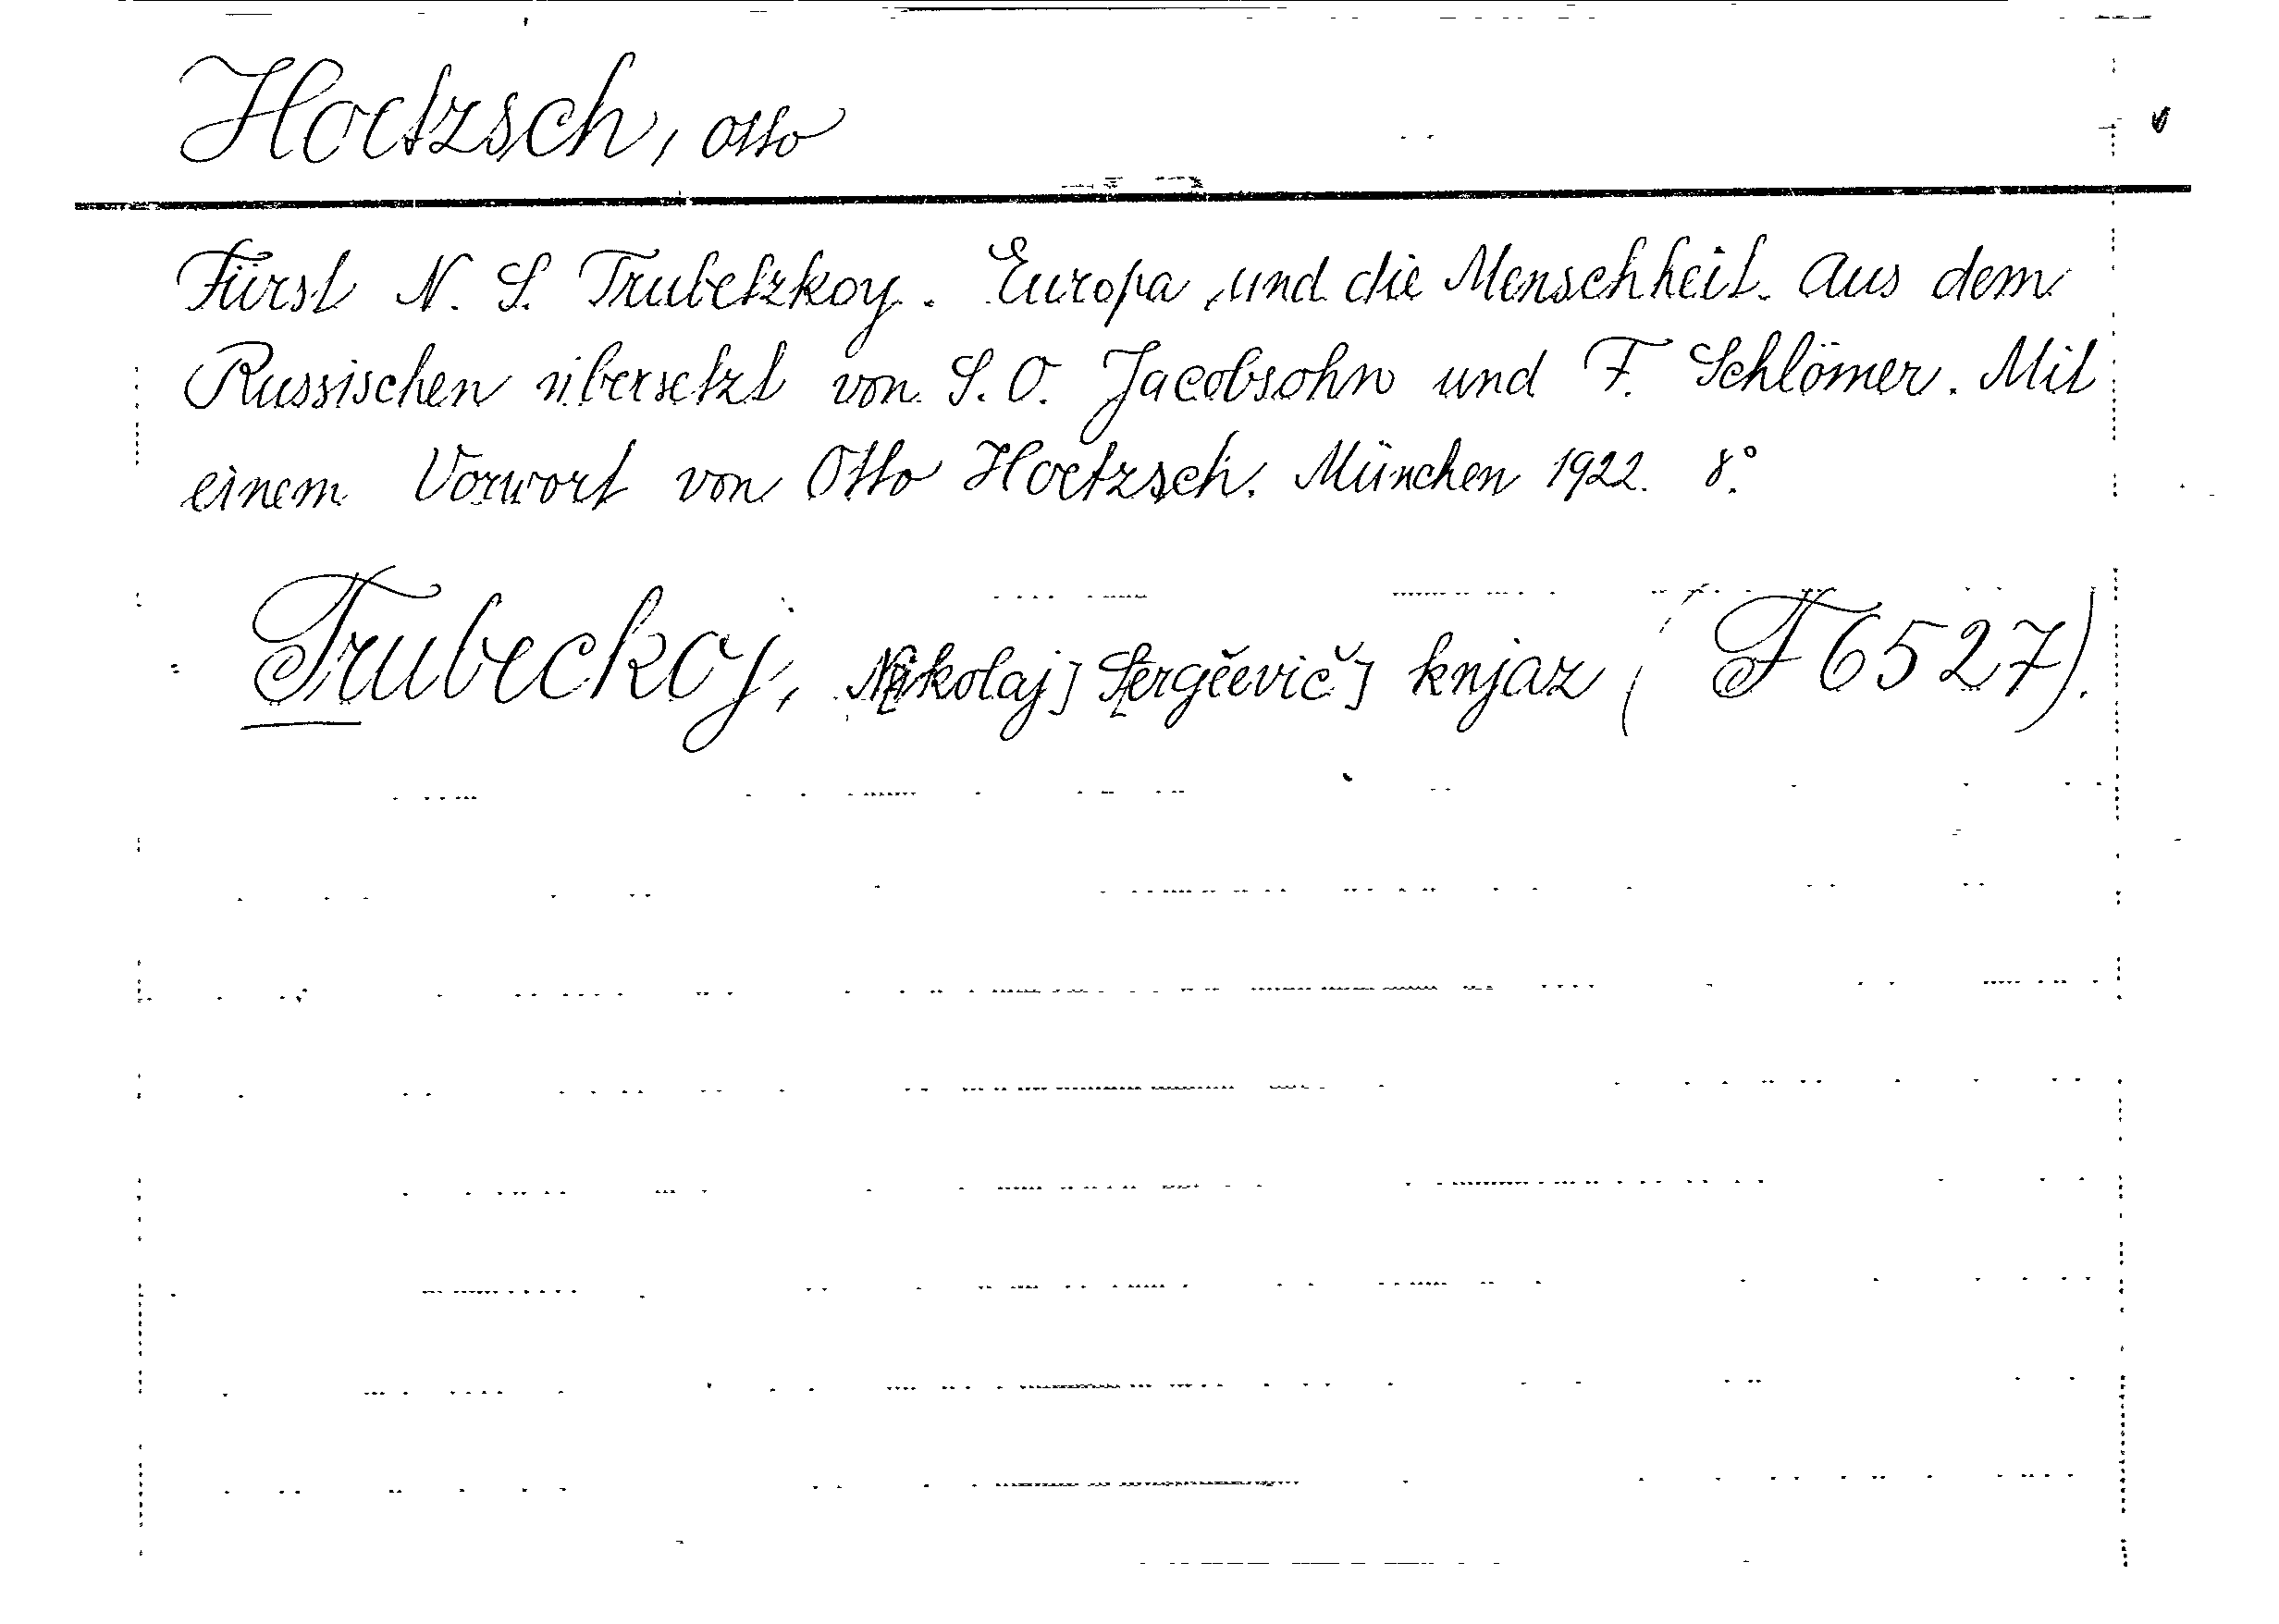 Hoetzsch, Otto
Fürst N. S. Trubetzkoy. Europa und die Menschheit. Aus dem
Russischen übersetzt von S. O. Jacobsohn und F. Schlömer. Mit
einem Vorwort von Otto Hoetzsch. München 1922. 8°.
Trubeckoj, N[ikolaj] S[ergěevič] knjaz (F 6527).